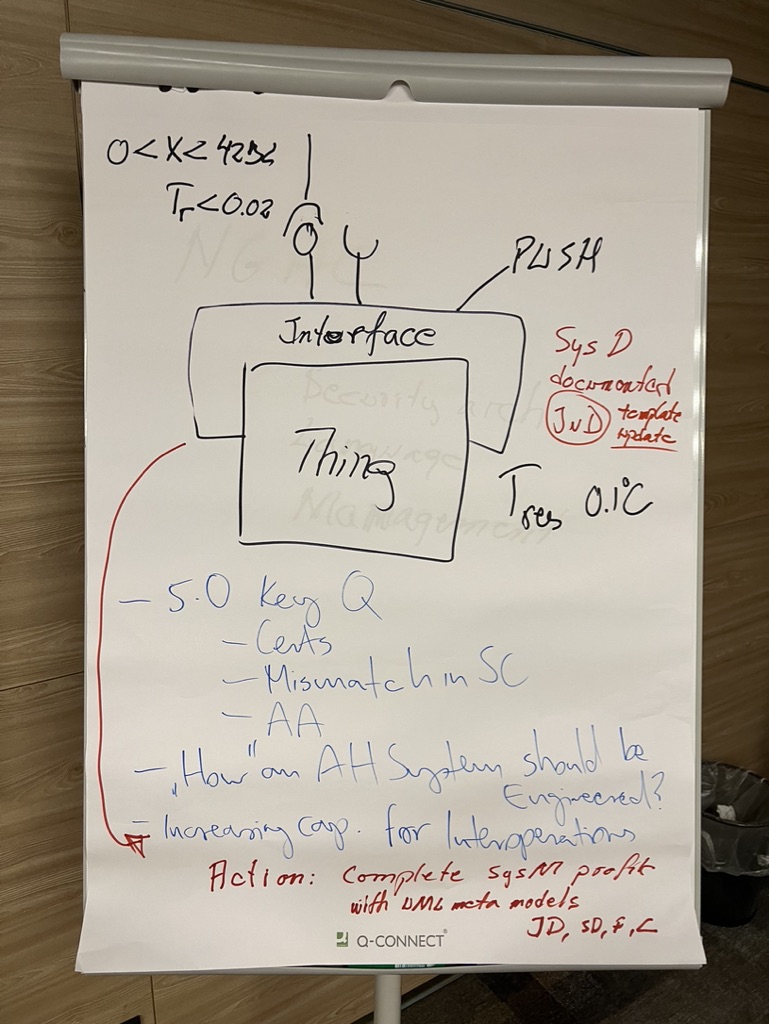 0 < X < 4256
Tr < 0.02
PUSH
Interface
Thing
SysD
documented
IDD template
update
Tres 0.1°C
- 5.0 Key Q
- Certs
- Mismatch in SC
- AA
- „How" an AH System should be
Engineered?
- Increasing cap. for Interoperations
Action: Complete SysM profit
with UML meta models
ID, SD, F, C
Q-CONNECT